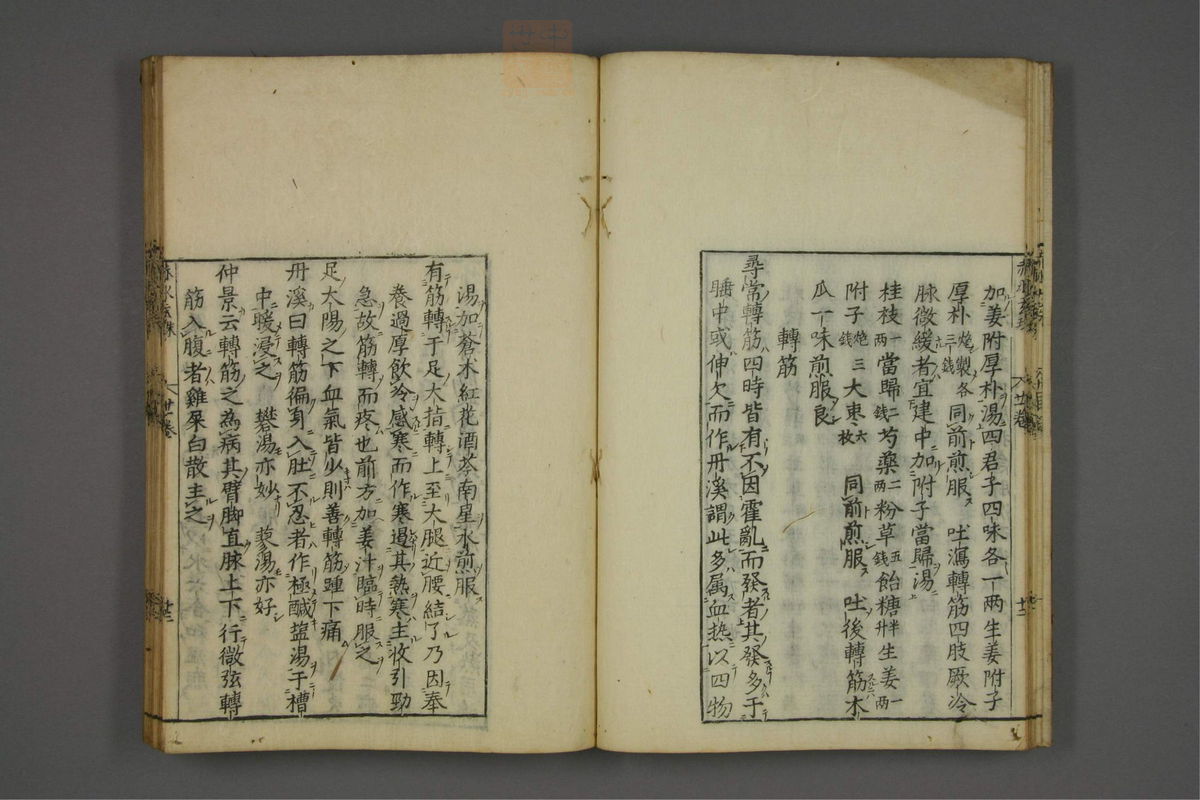 加姜附厚朴湯四君子四味各一兩生姜附子
厚朴炮製各三錢同前煎服　吐瀉轉筋四肢厥冷
脉微緩者宜建中加附子當歸湯
桂枝一兩當歸二錢芍藥二兩粉草五錢飴糖半升生姜一兩
附子炮三錢大枣六枚　同前煎服　吐後轉筋木
瓜一味煎服良
轉筋
尋常轉筋四時皆有不因霍亂而發者其發多于
睡中或伸欠而作丹溪謂此多属血热以四物
湯加蒼术紅花酒芩南星水煎服
有筋轉于足大指轉上至大腿近腰結了乃因奉
養過厚飲冷感寒而作寒遏其熱寒主收引勁
急故筋轉而疼也前方加姜汁臨時服之
足太陽之下血氣皆少則善轉筋踵下痛
丹溪曰轉筋徧身入肚不忍者作極鹹塩湯于槽
中暖浸之　礬湯亦妙　蓼湯亦好
仲景云轉筋之為病其臂脚直脉上下行微弦轉
筋入腹者雞屎白散主之